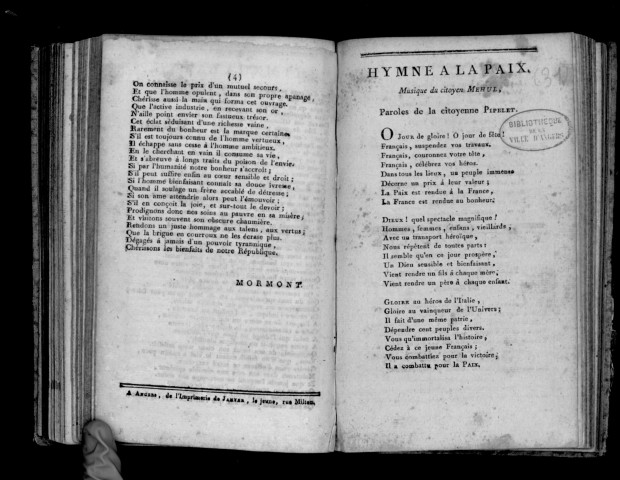 (4)
On connaisse le prix d'un mutuel secours,
Et que l'homme opulent, dans son propre apanage,
Chérisse aussi la main qui forma cet ouvrage.
Que l'active industrie, en recevant son or,
N'aille point envier son fameux trésor.
Cet éclat séduisant d'une richesse vaine,
Rarement du bonheur est la marque certaine,
S'il est toujours connu de l'homme vertueux,
Il échappe sans cesse à l'homme ambitieux.
En le cherchant en vain il consume sa vie,
Et s'abreuve à longs traits du poison de l'envie,
Si par l'humanité notre bonheur s'accroît;
S'il peut suffire enfin au cœur sensible et droit;
Si l'homme bienfaisant connaît sa douce ivresse,
Quand il soulage un frère accablé de détresse;
Si son âme attendrie alors peut l'émouvoir;
S'il en conçoit la joie, et sur-tout le devoir;
Prodiguons donc nos soins au pauvre en sa misère;
Et visitons souvent son obscure chaumière.
Rendons un juste hommage aux talens, aux vertus;
Que la brigue en courroux ne les écrase plus.
Dégagés à jamais d'un pouvoir tyrannique,
Chérissons les bienfaits de notre République.
MORMONT.
A ANGERS, de l'Imprimerie de JAHYER, le jeune, rue Milieu.
HYMNE A LA PAIX.
Musique du citoyen MEHUL,
Paroles de la citoyenne PIPELET.
BIBLIOTHÈQUE
DE LA
VILLE D'ANGERS
O JOUR de gloire! O jour de fête!
Français, suspendez vos travaux.
Français, couronnez votre tête,
Français, célébrez vos héros.
Dans tous les lieux, un peuple immense
Décerne un prix à leur valeur;
La Paix est rendue à la France,
La France est rendue au bonheur.
DIEUX! quel spectacle magnifique!
Hommes, femmes, enfans, vieillards,
Avec un transport héroïque,
Nous répètent de toutes parts:
Il semble qu'en ce jour prospère,
Un Dieu sensible et bienfaisant,
Vient rendre un fils à chaque mère,
Vient rendre un père à chaque enfant.
GLOIRE au héros de l'Italie,
Gloire au vainqueur de l'Univers;
Il fait d'une même patrie,
Dépendre cent peuples divers.
Vous qu'immortalisa l'histoire,
Cédez à ce jeune Français;
Vous combattiez pour la victoire,
Il a combattu pour la PAIX.